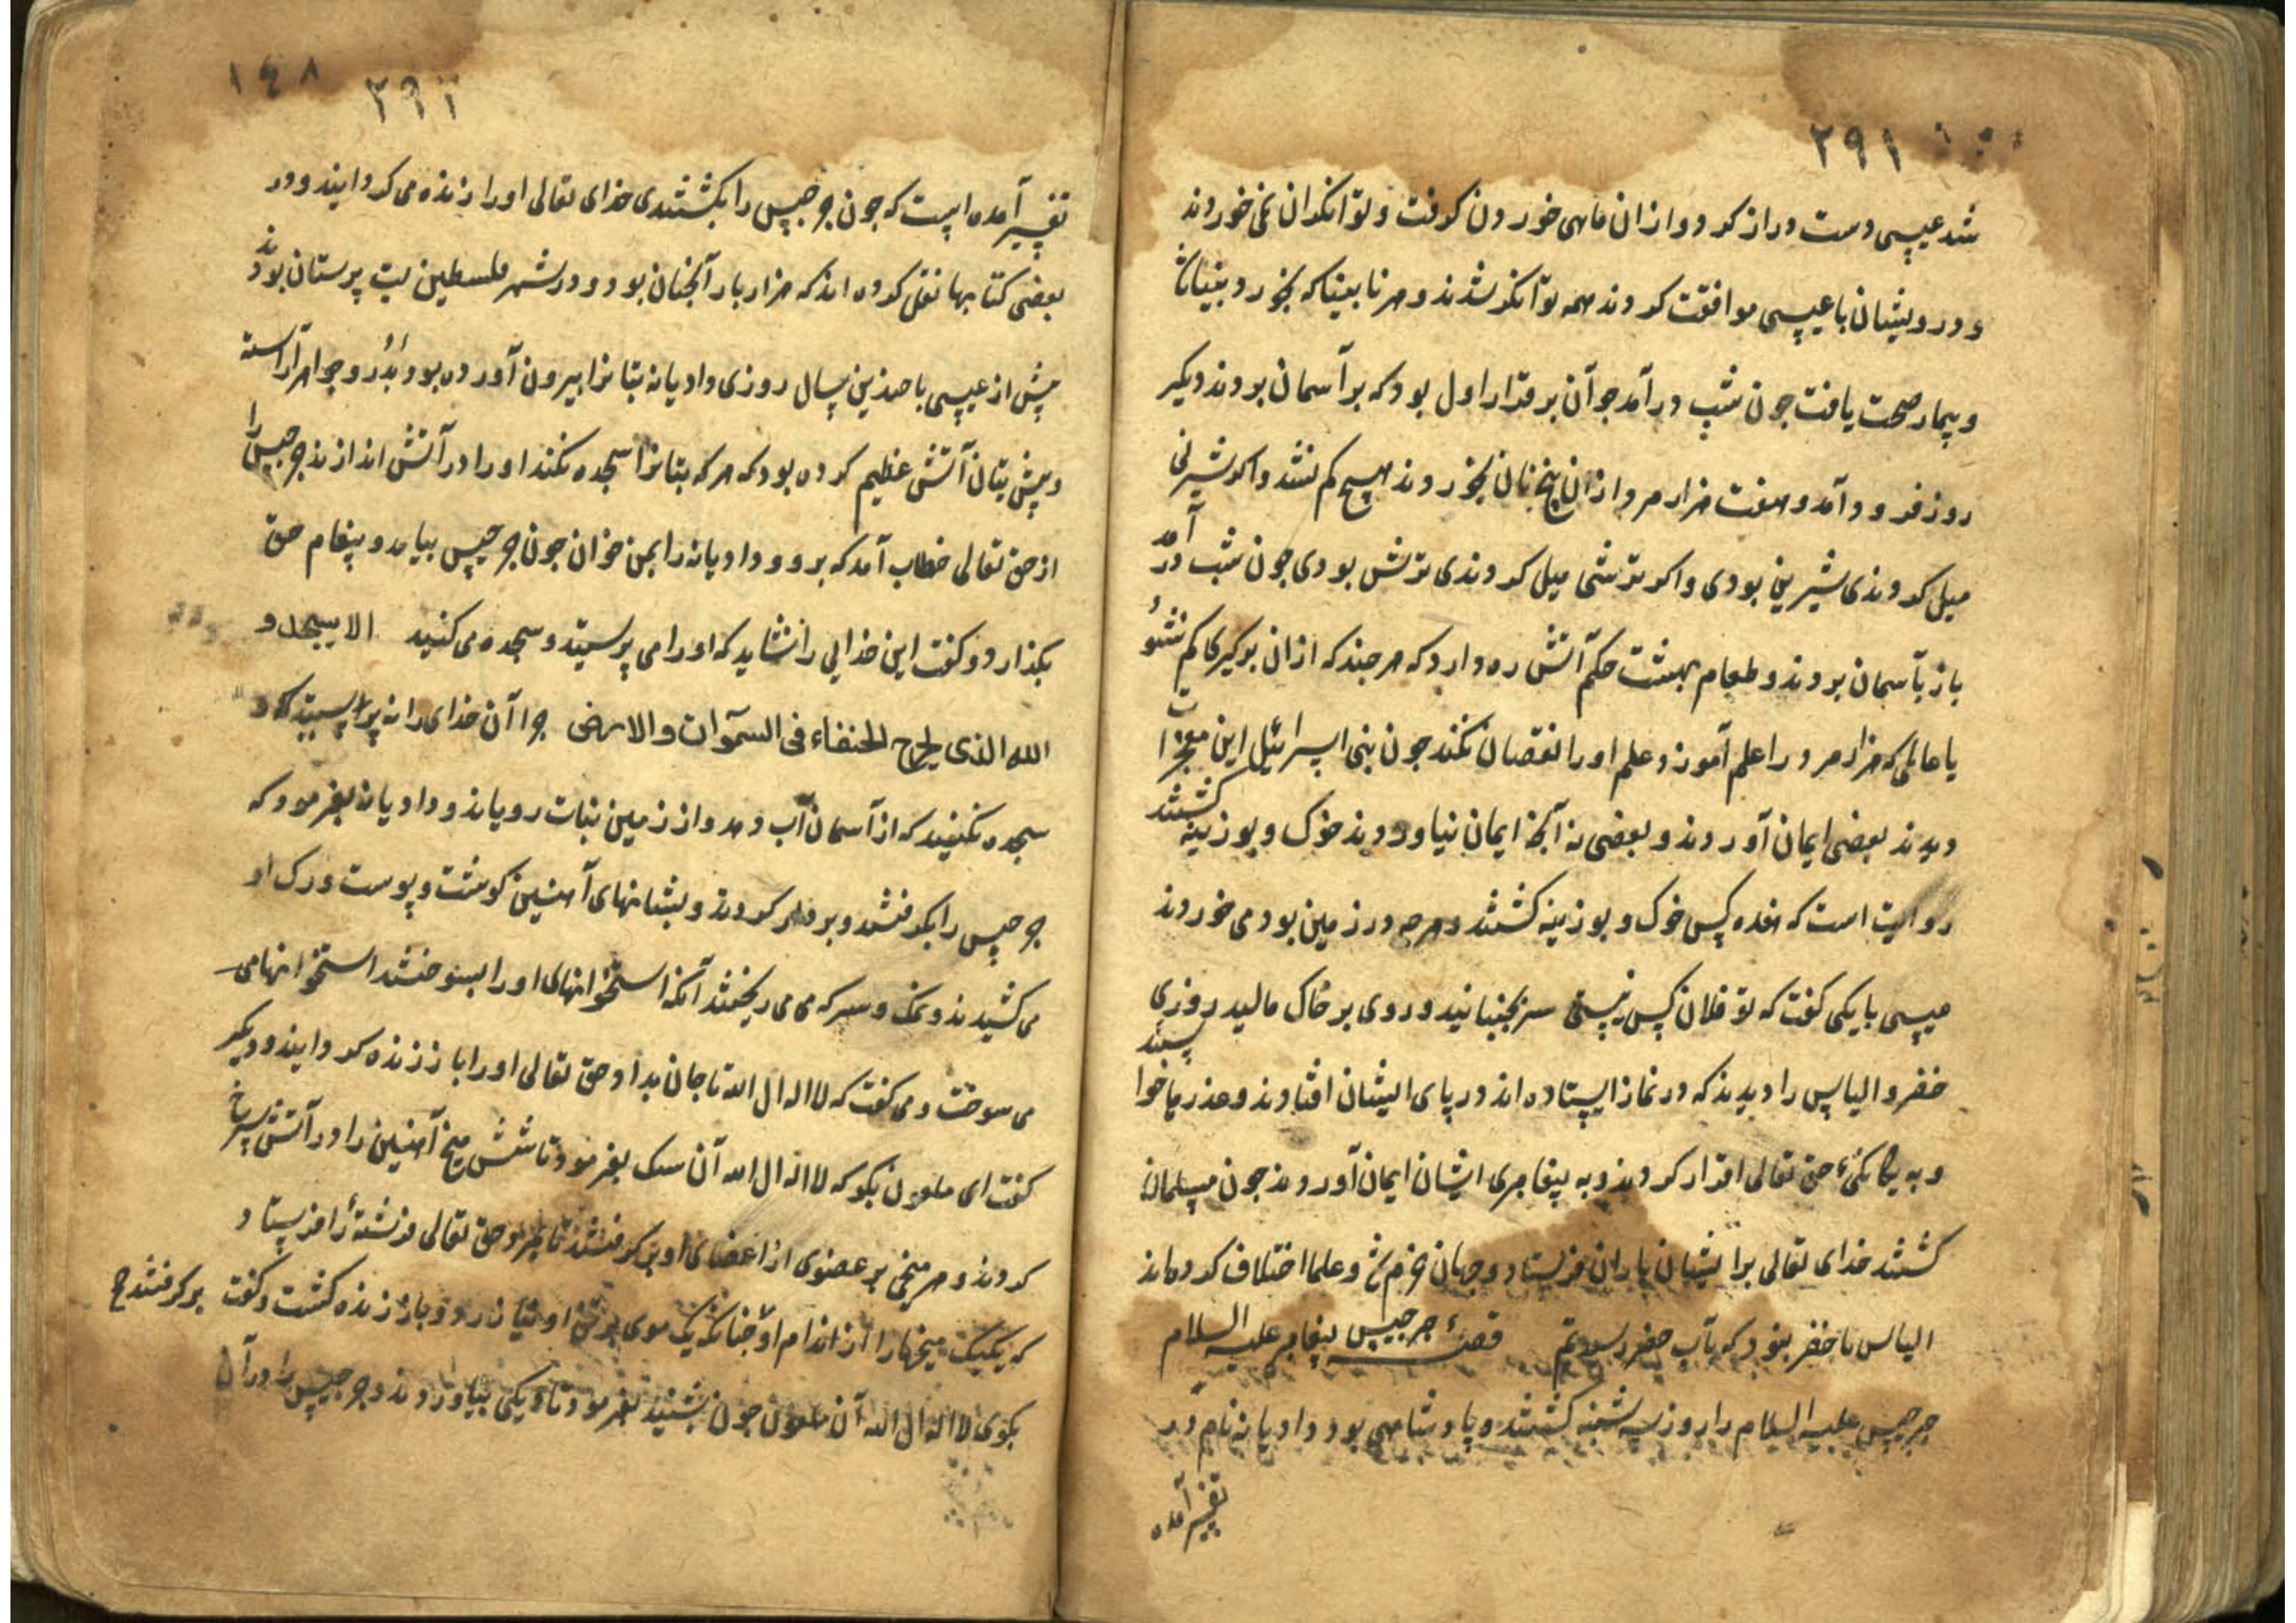 ۲۹۱
شد عیسی دست دراز کرد و از ان ماهی خوردن کرفت و توانکران نمی خوردند
و درویشان با عیسی موافقت کردند همه توانکر شدند و هر نابیناکه بخورد بینا شد
و بیمار صحت یافت جون شب درآمد جوآن برقرار اول بودکه بر آسمان بردند دیکر
روز فرود آمد و هفت هزار مرد ازان پنج نان بخوردند هیچ کم نشد و اکر شیرنی
میل کردندی شیرین بودی و اکر ترشی میل کردندی ترش بودی جون شب در آمد
باز بآسمان بردند و طعام بهشت حکم آتش ره دارد که هر جند که ازان برکیری کم نشود
یا عالمی که هزار مرد را علم آموزد علم اورا نقصان نکند جون بنی اسرائیل این معجزات را
دیدند بعضی ایمان آوردند و بعضی نه آنجه ایمان نیاوردند خوک و بوزینه کشتند
روایت است که هفده کس خوک و بوزینه کشتند و هرجه در زمین بود می خوردند
عیسی با یکی کفت که تو فلان کس نیستی سر بجنبانید و روی بر خاک مالید روزی
خضر و الیاس را دیدند که در نماز ایستاده اند در پای ایشان افتادند و عذر میخواستند
و به یکانکیٔ حق تعالی اقرار کردند و به پیغامبری ایشان ایمان آوردند جون مسلمان
کشتند خدای تعالی برایشان باران فرستاد و جهان خرم شد و علما اختلاف کرده اند
الیاس با خضر بنود که بآب خضر رسیدیم قصهٔ جرجیس پیغامبر علیه السلام
جرجیس علیه السلام را روز سه شنبه کشتند و پادشاهی بود دادیانه نام در
تفسیر آمده
۱۴۸
۲۹۲
تفسیر آمده است که جون جرجیس را بکشتندی خدای تعالی اورا زنده می کردانیند و در
بعضی کتابها نقل کرده اند که هزار بار آنجنان بود و در شهر فلسطین بت پرستان بودند
پیش از عیسی با صدین سال روزی دادیانه بتانرا بیرون آورده بود بدُر و جواهر آراسته
و پیش بتان آتش عظیم کرده بود که هر که بتانرا سجده نکند اورا در آتش اندازند جرجیس را
از حق تعالی خطاب آمد که برو و دادیانه را بمن خوان جون جرجیس بیامد و پیغام حق
بکذارد و کفت این خدایی را نشاید که اورا می پرستید و سجده می کنید الا یسجدو
الله الذی یخرج الخبناء فی السموات والارض جرا آن خدای را نه پرستید که او
سجده نکنید که از آسمان آب دهد و از زمین نبات رویاند و دادیانه بفرمود که
جرجیس را بکرفتند و بر دار کردند و بشانهای آهنین کوشت و پوست و رک او
می کشیدند و نمک و سرکه می می ریختند آنکه استخوانهای اورا بسوختند استخوانها می
می سوخت و می کفت که لا اله ال الله تا جان بداد حق تعالی اورا باز زنده کردانیند و دیکر
کفت ای ملعون بکو که لا اله ال الله آن سک بفرمود تا شش میخ آهنین را در آتش سرخ
کردند و هر میخی بر عضوی از اعضای او بر کرفتند تا بمرد حق تعالی فرشتهٔ را فرستاد
که یکیک میخهارا از اندام او جنانکه یک موی برتن او زیان نرود و باز زنده کشت و کفت بر کرفتند
بکوی لا اله ال الله آن ملعون جون بشنید بفرمود تا دیکی بیاوردند و جرجیس را در آن